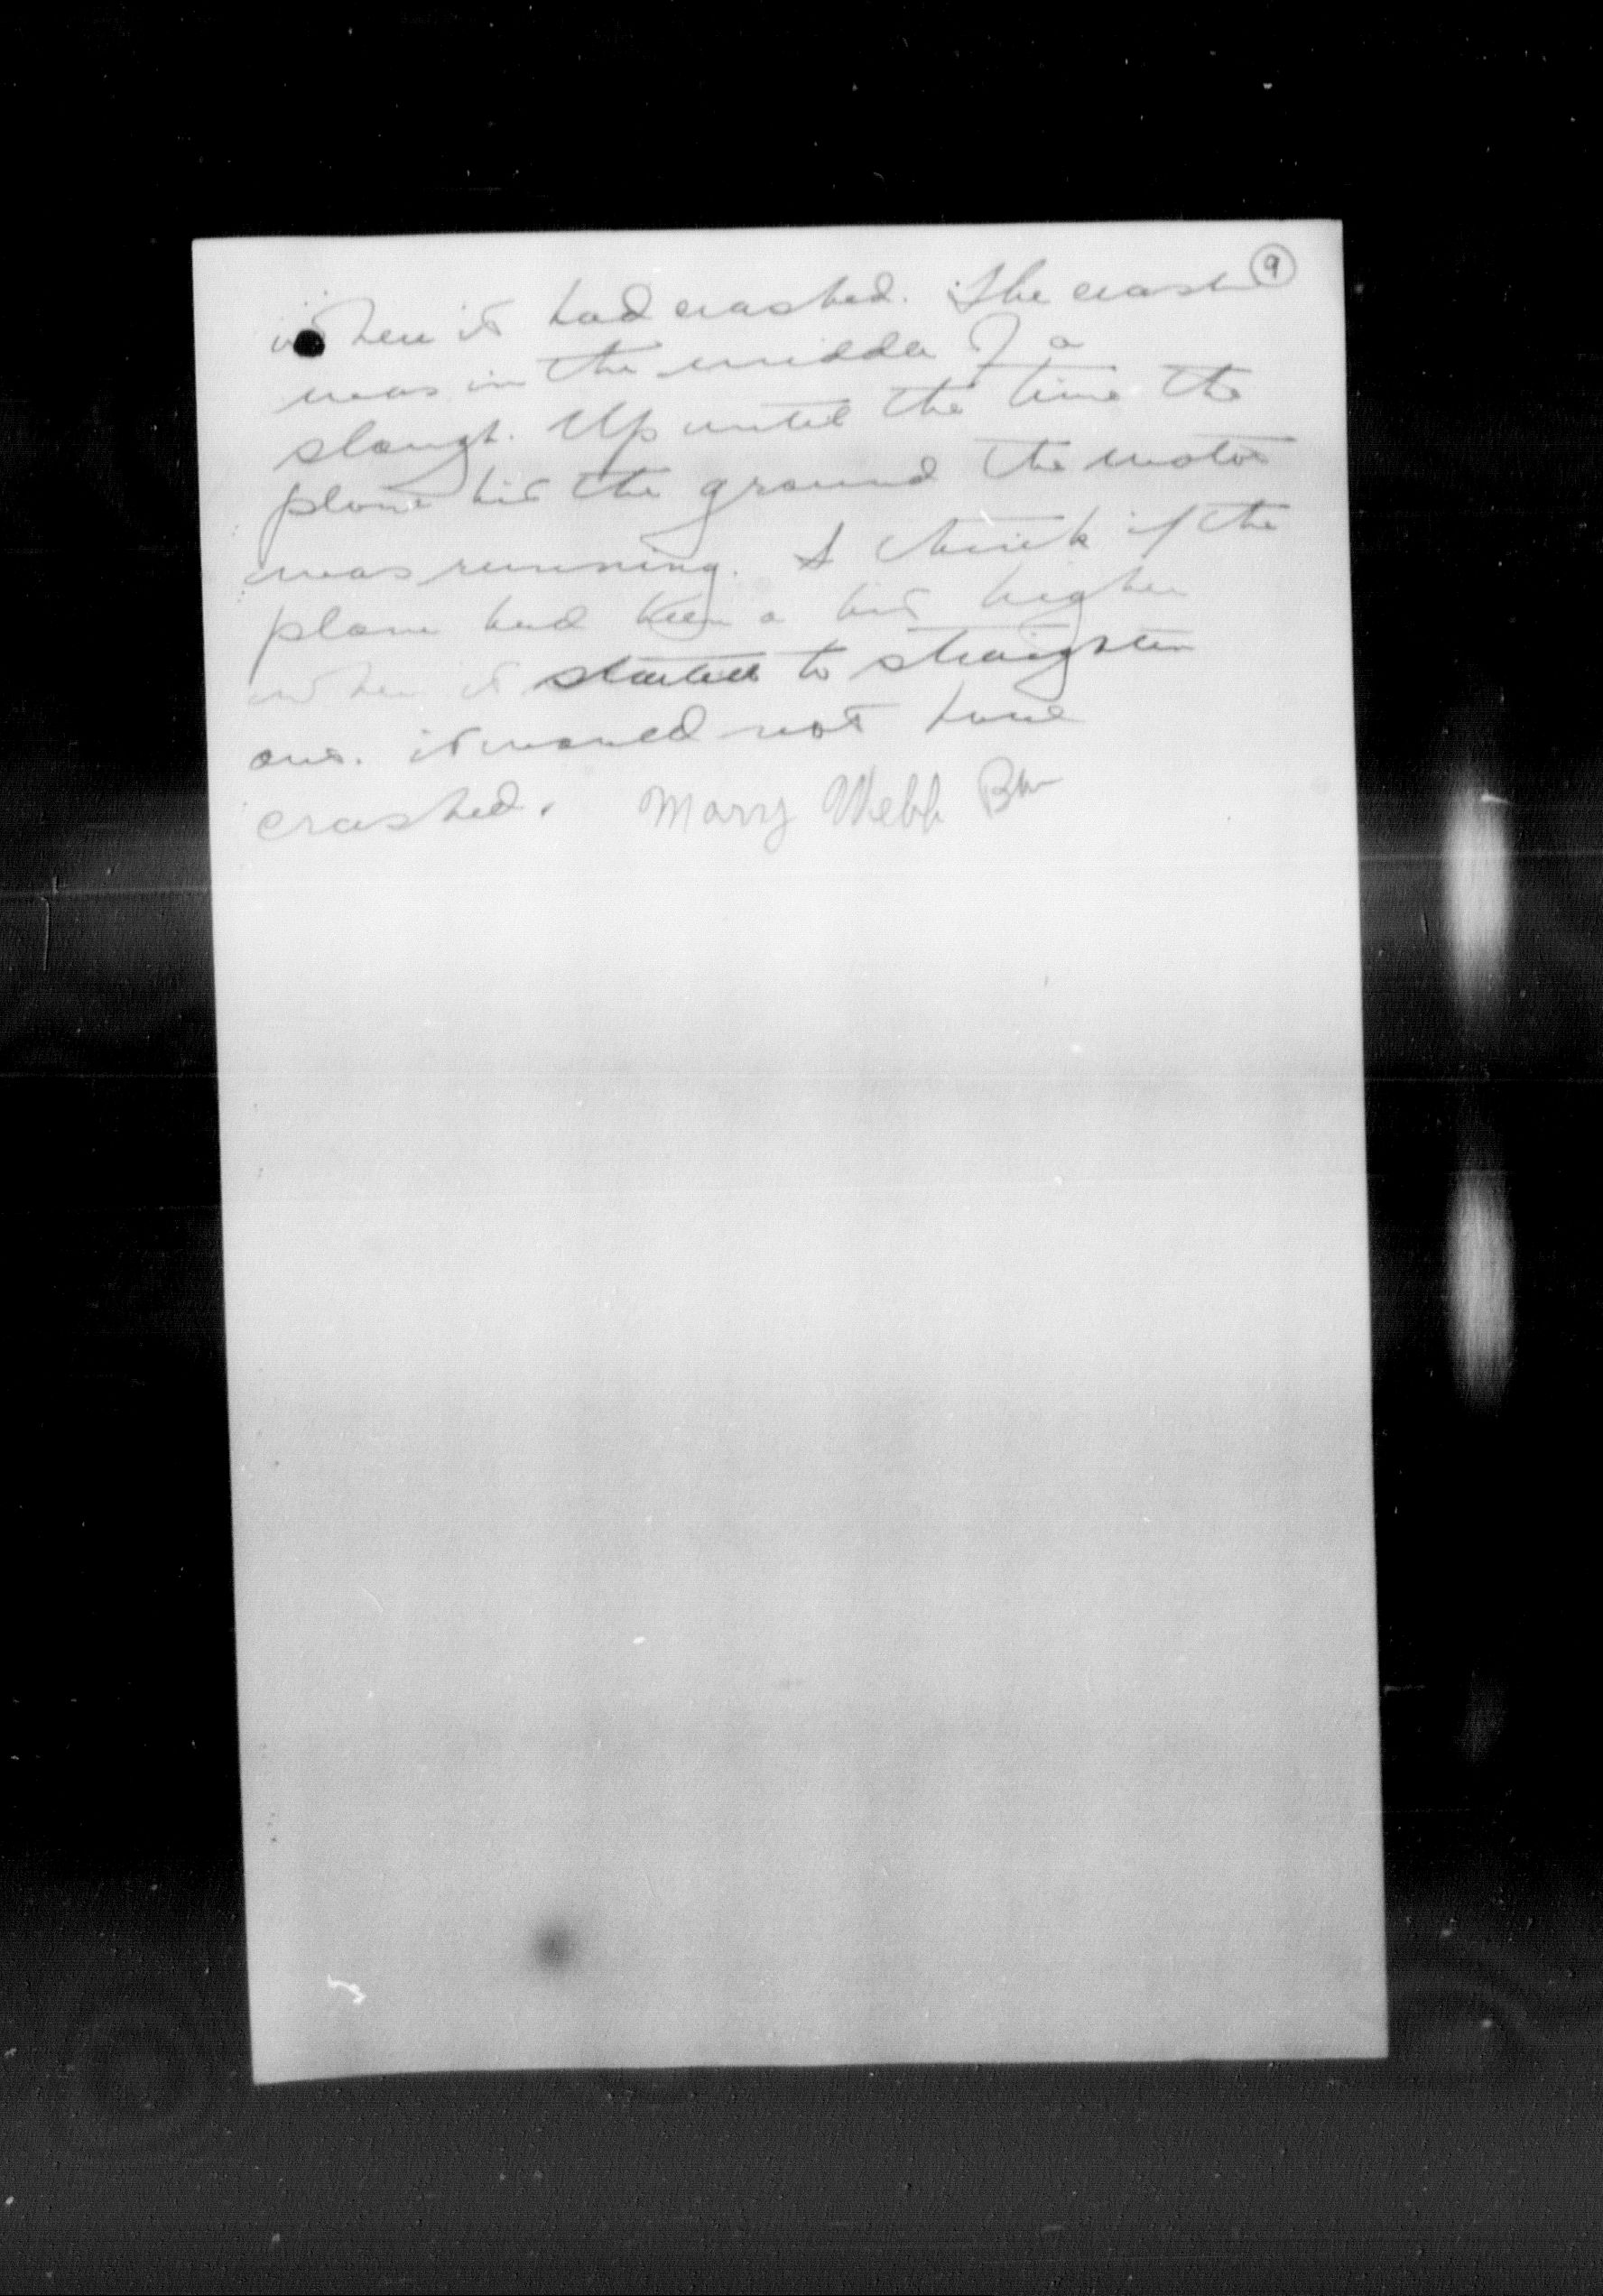 9
when it had crashed. The crash
was in the middle of a
slough. Up until the time the
plane hit the ground the motor
was running. I think if the
plane had been a bit higher
when it started to straighten
out. it would not have
crashed. Mary Webb